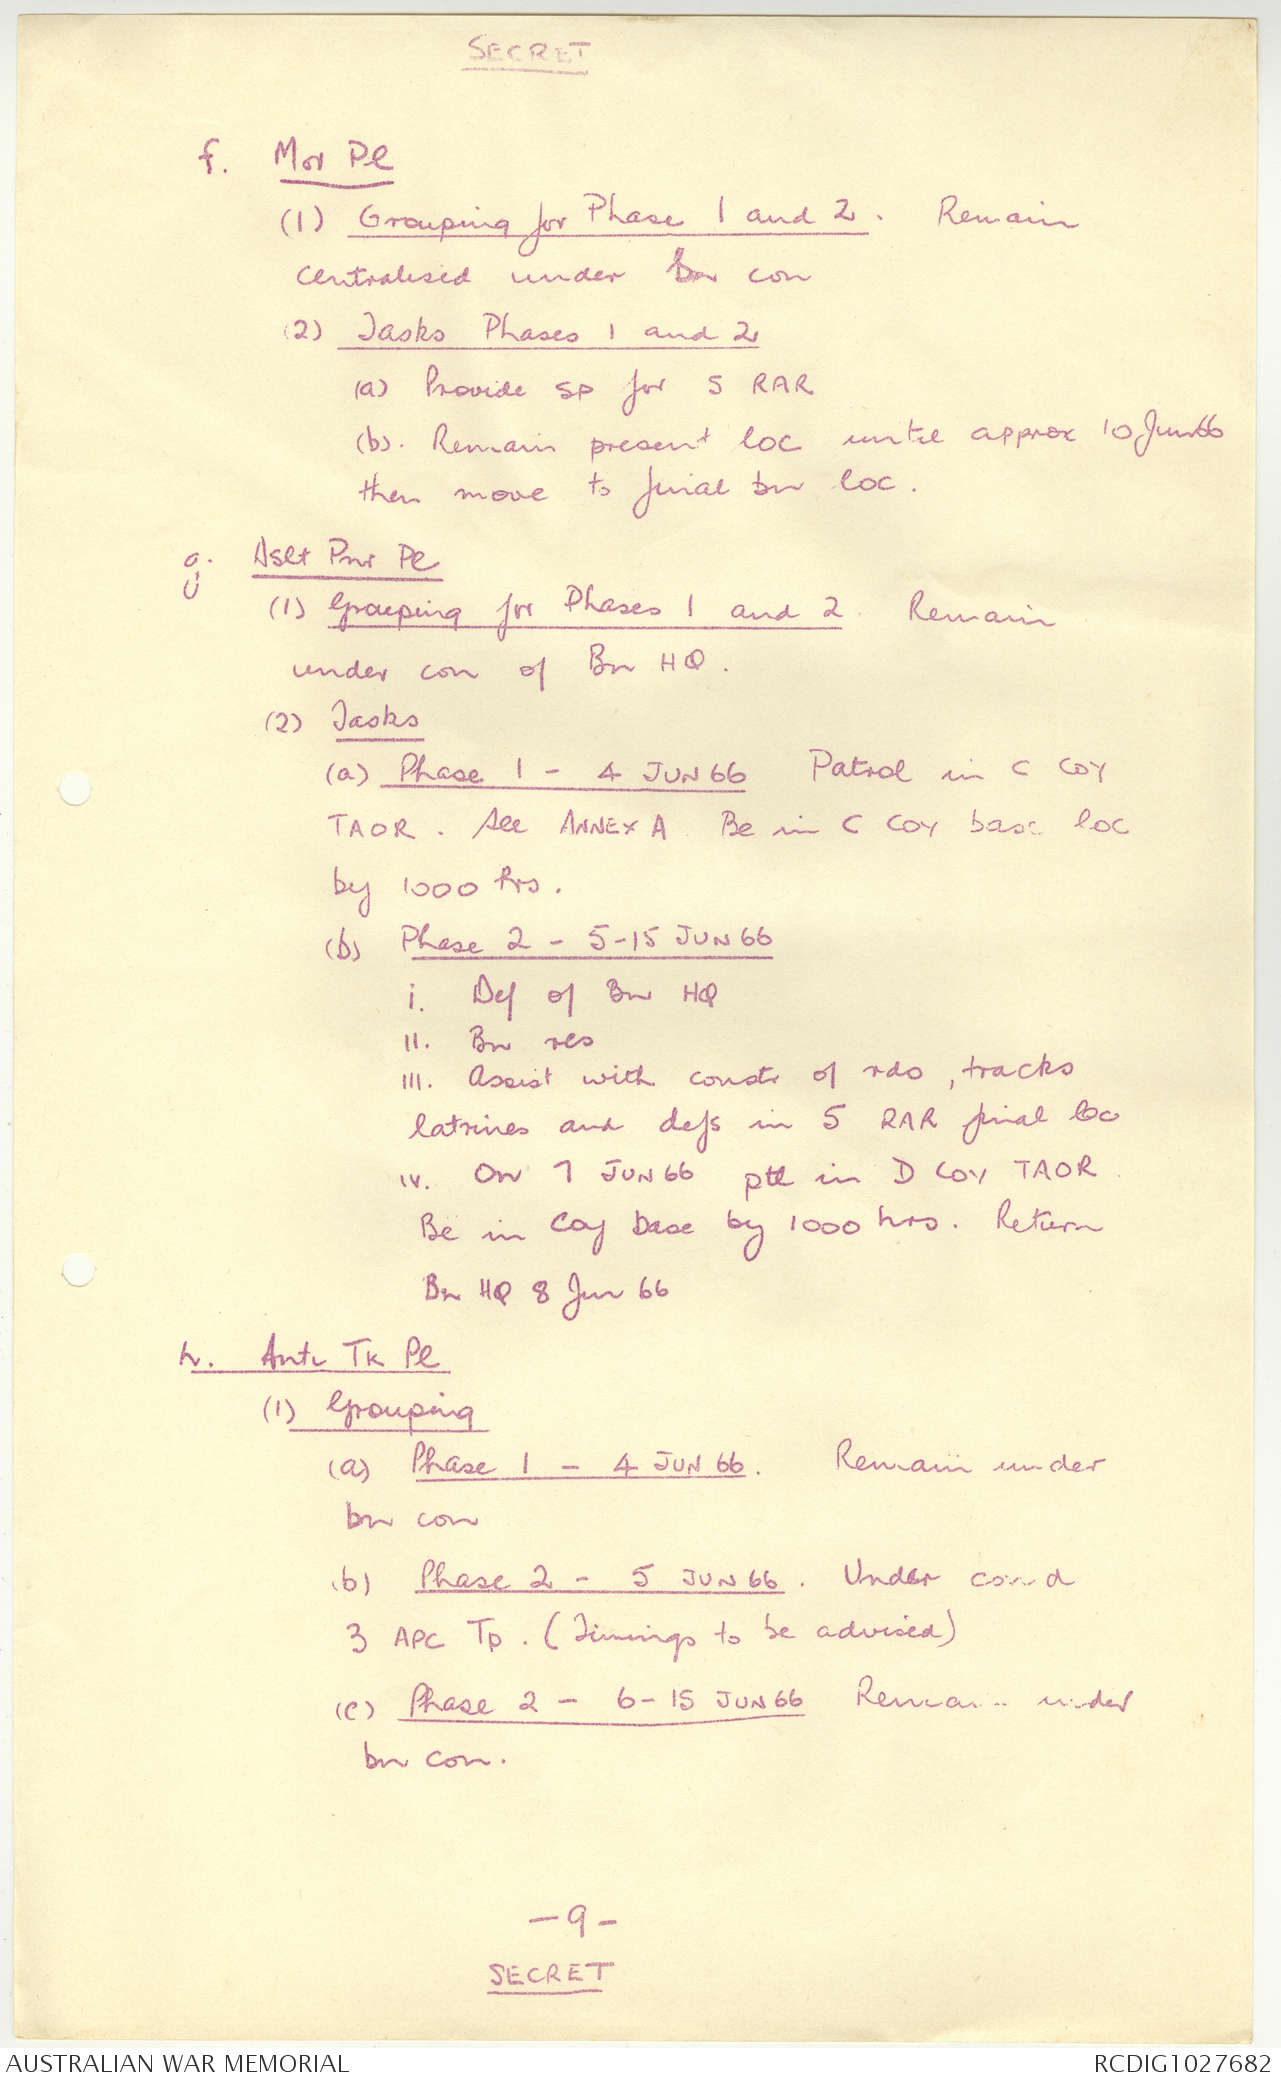 SECRET
f. Mor Pl
(1) Grouping for Phase 1 and 2. Remain
centralised under Bn con
(2) Tasks Phases 1 and 2
(a) Provide sp for 5 RAR
(b). Remain present loc until approx 10 Jun 66
then move to final bn loc.
g. Aslt Pnr Pl
(1) Grouping for Phases 1 and 2. Remain
under con of Bn HQ.
(2) Tasks
(a) Phase 1 - 4 JUN 66 Patrol in C COY
TAOR. See ANNEX A. Be in C COY base loc
by 1000 hrs.
(b) Phase 2 - 5-15 JUN 66
i. Def of Bn HQ
ii. Bn res
iii. Assist with constr of rds, tracks
latrines and defs in 5 RAR final loc
iv. On 7 JUN 66 ptl in D COY TAOR.
Be in Coy base by 1000 hrs. Return
Bn HQ 8 Jun 66
h. Anti Tk Pl
(1) Grouping
(a) Phase 1 - 4 JUN 66. Remain under
bn con
(b) Phase 2 - 5 JUN 66. Under comd
3 APC Tp. (Timings to be advised)
(c) Phase 2 - 6-15 JUN 66 Remain under
bn con.
-9-
SECRET
AUSTRALIAN WAR MEMORIAL
RCDIG1027682